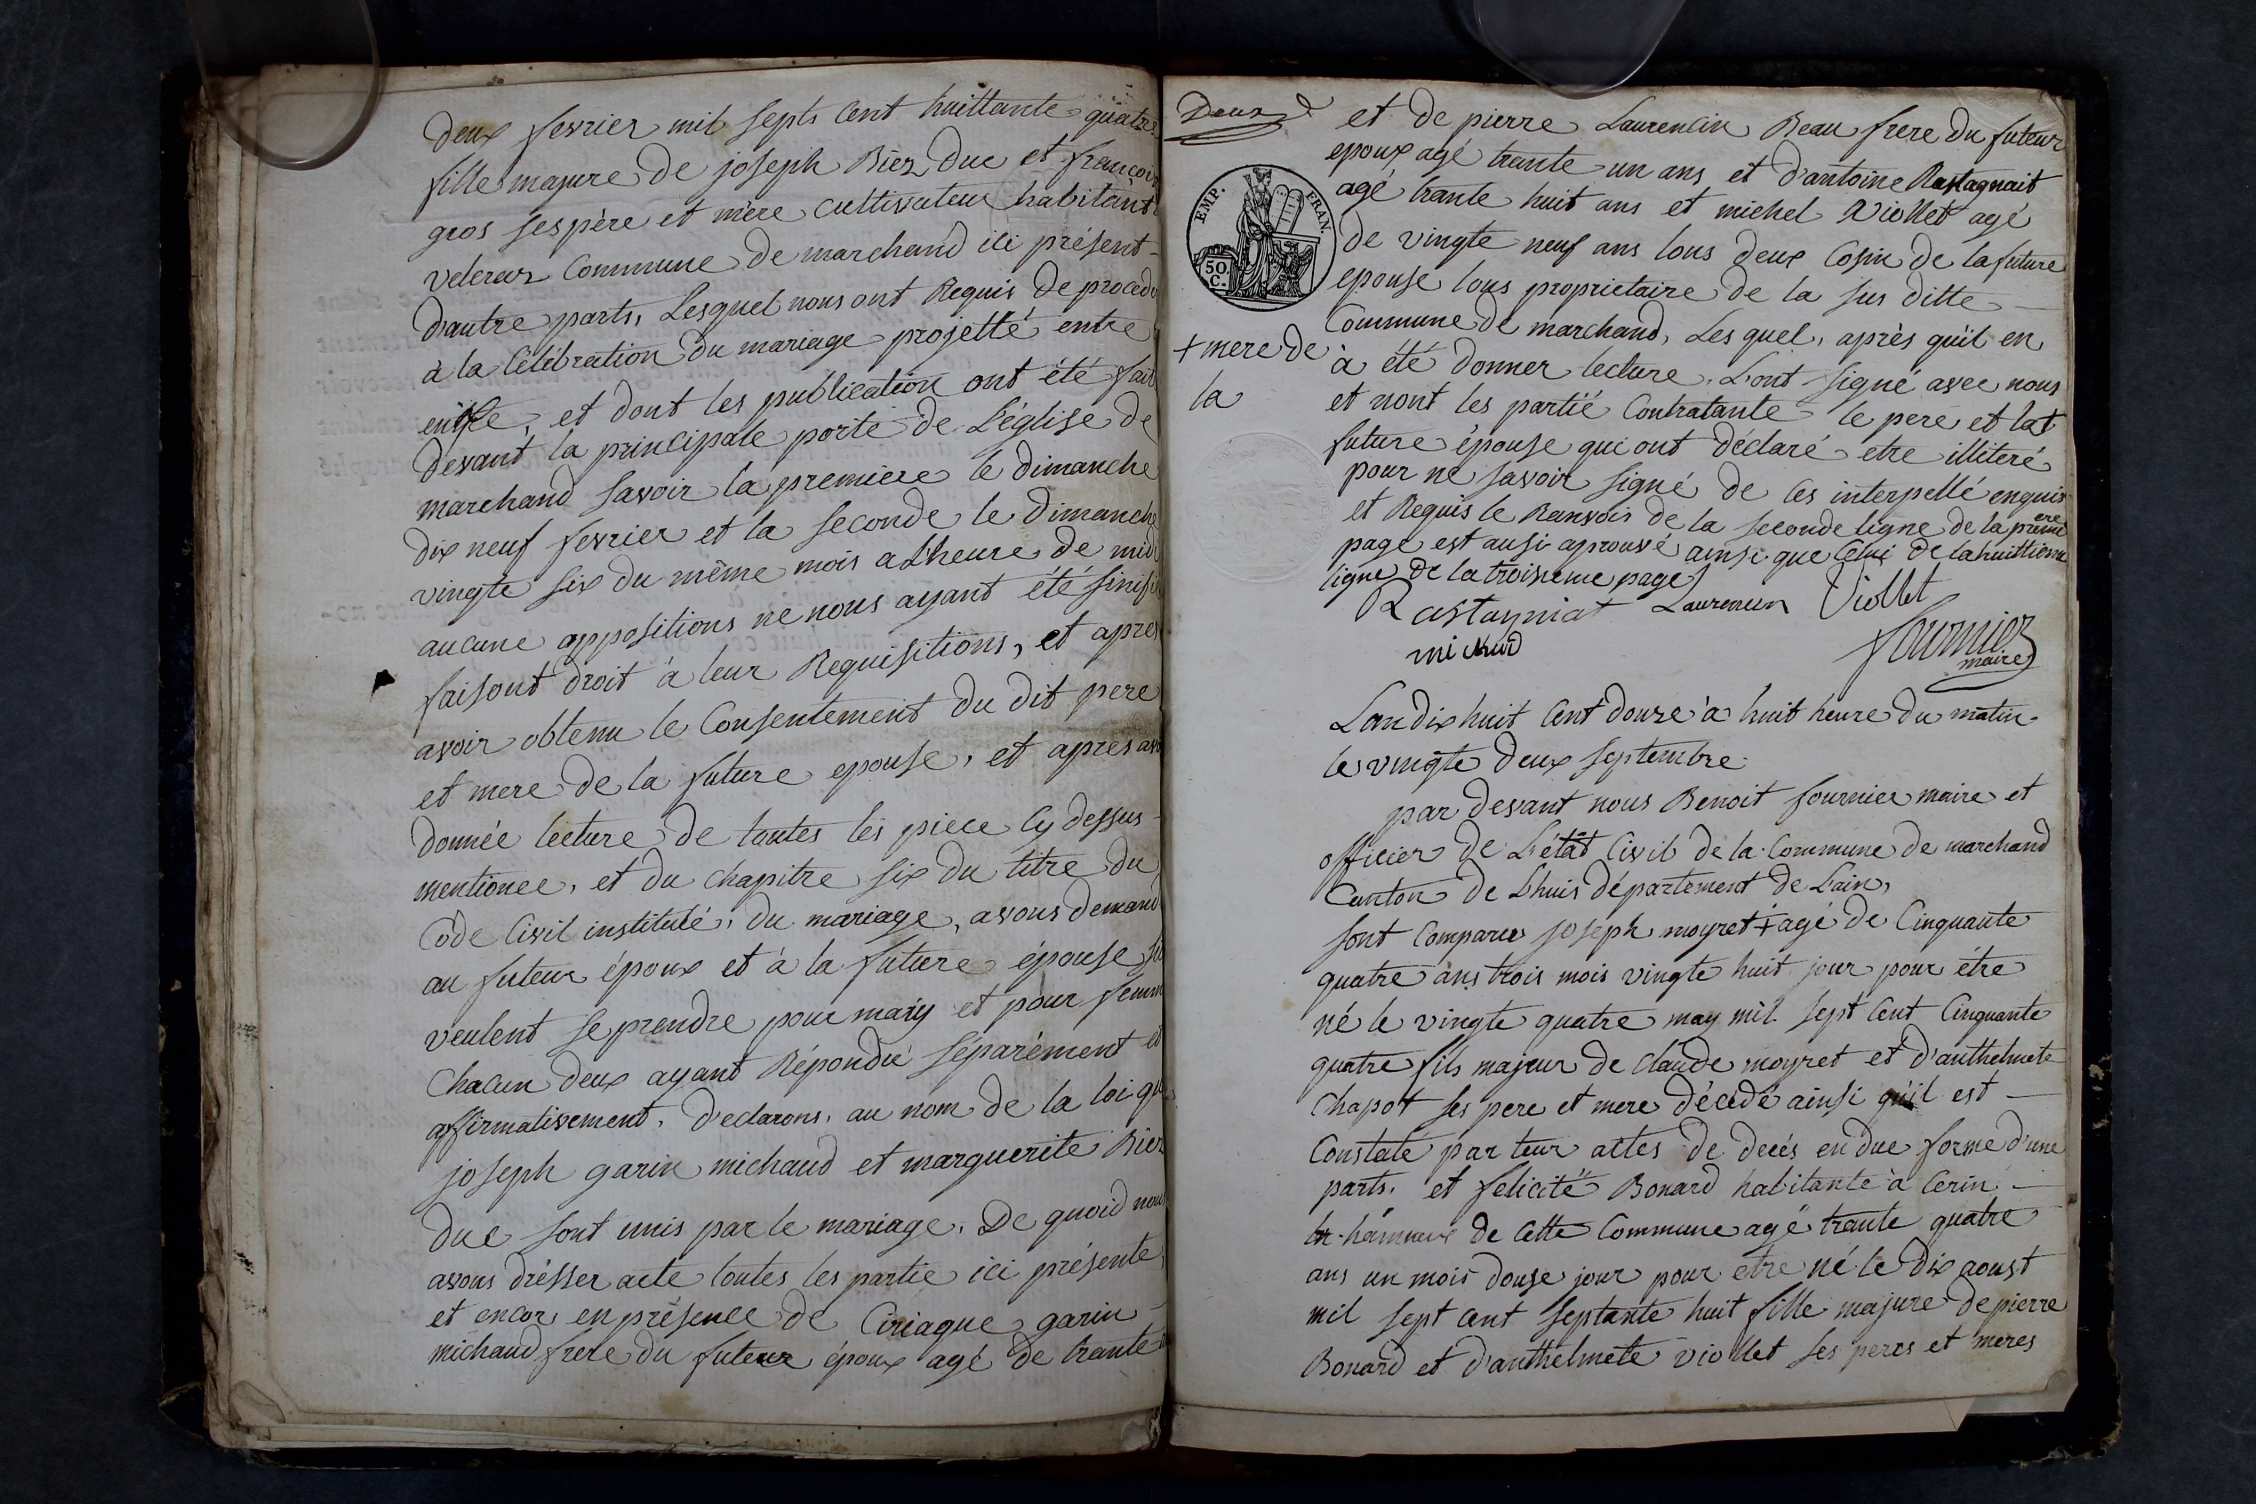 deux fevrier mil septs cent huittante quatre
fille majure de joseph Biez duc et françoise
gros ses père et mère cultivateur habitant
veleraz Commune de marchand ici présent
d'autre parts, Lesquel nous ont Requis de procedé
à la Célébration du mariage projetté entre
et dont les publication ont été fait
devant la principale porte de L'église de
marchand savoir la premiere le dimanche
dix neuf fevrier et la seconde le dimanche
vingte six du même mois a L'heure de midi
aucune appositions ne nous ayant été sinifi
faisont droit à leur Requisitions, et apres
avoir obtenu le Consentement du dit pere
et mere de la future epouse, et apres avo
donnée lecture de toutes les piece Cy dessus
mentionee, et du chapitre six du titre du
Côde Civil institulé, du mariage, avons demand
au futeur époux et à la future épouse si
veulent se prendre pour mary et pour femm
Chacun deux ayant Répondu séparément et
affirmativement, Declarons, au nom de la loi que
joseph garin michaud et marguerite Biez
duc sont unis par le mariage. De quoid nous
avons dresser acte toutes les partie ici présente
et encor en présence de Ciriaque garin
michaud frere du futeur époux agé de trante
Deux
et de pierre Laurencin Beau frere du futeur
epoux agé trante un ans, et d'antoine Rastagnait
agé trante huit ans et michel Viollet agé
de vingte neuf ans tous deux Cosin de la future
epouse tous proprietaire de la sus ditte
Commune de marchand, Les quel, après qu'il en
à été donner lecture, L'ont signé avec nous
et nont les partié Contratante le pere et la +
future épouse qui ont déclaré etre illiteré
pour ne savoir signé de ces interpellé enquis
et Requis le Ranvois de la seconde ligne de la premiere
page est ausi aprouvé ainsi que Celui de la huittieme
ligne de la troisieme page
+ mere de
la
EMP. FRAN.
50 C.
Rastagniat Laurencin Viollet
michud
fournier
maire
L'an dix huit Cent douze à huit heure du matin
le vingte deux septembre
par devant nous Benoit fournier maire et
officier de L'état Civil de la Commune de marchand
Canton de Lhuis département de L'ain,
sont Comparu joseph moyret + agé de Cinquante
quatre ans trois mois vingte huit jour pour étre
né le vingte quatre may mil sept Cent Cinquante
quatre fils majeur de Claude moyret et d'anthelmete
Chapot ses pere et mere décédé ainsi qu'il est
Constaté par leur actes de decés en due forme d'une
parts, et felicité Bonard habitante à Cerin
hammeux de Cette Commune agé trante quatre
ans un mois douze jour pour etre né le dix aoust
mil sept cent septante huit fille majure de pierre
Bonard et d'anthelmete viollet ses peres et meres